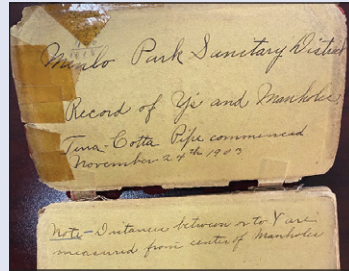 Menlo Park Sanitary District
Record of Y's and Manholes
Terra-Cotta Pipe commenced
November 24th 1903
Note - Distances between or to Y are
measured from center of Manholes